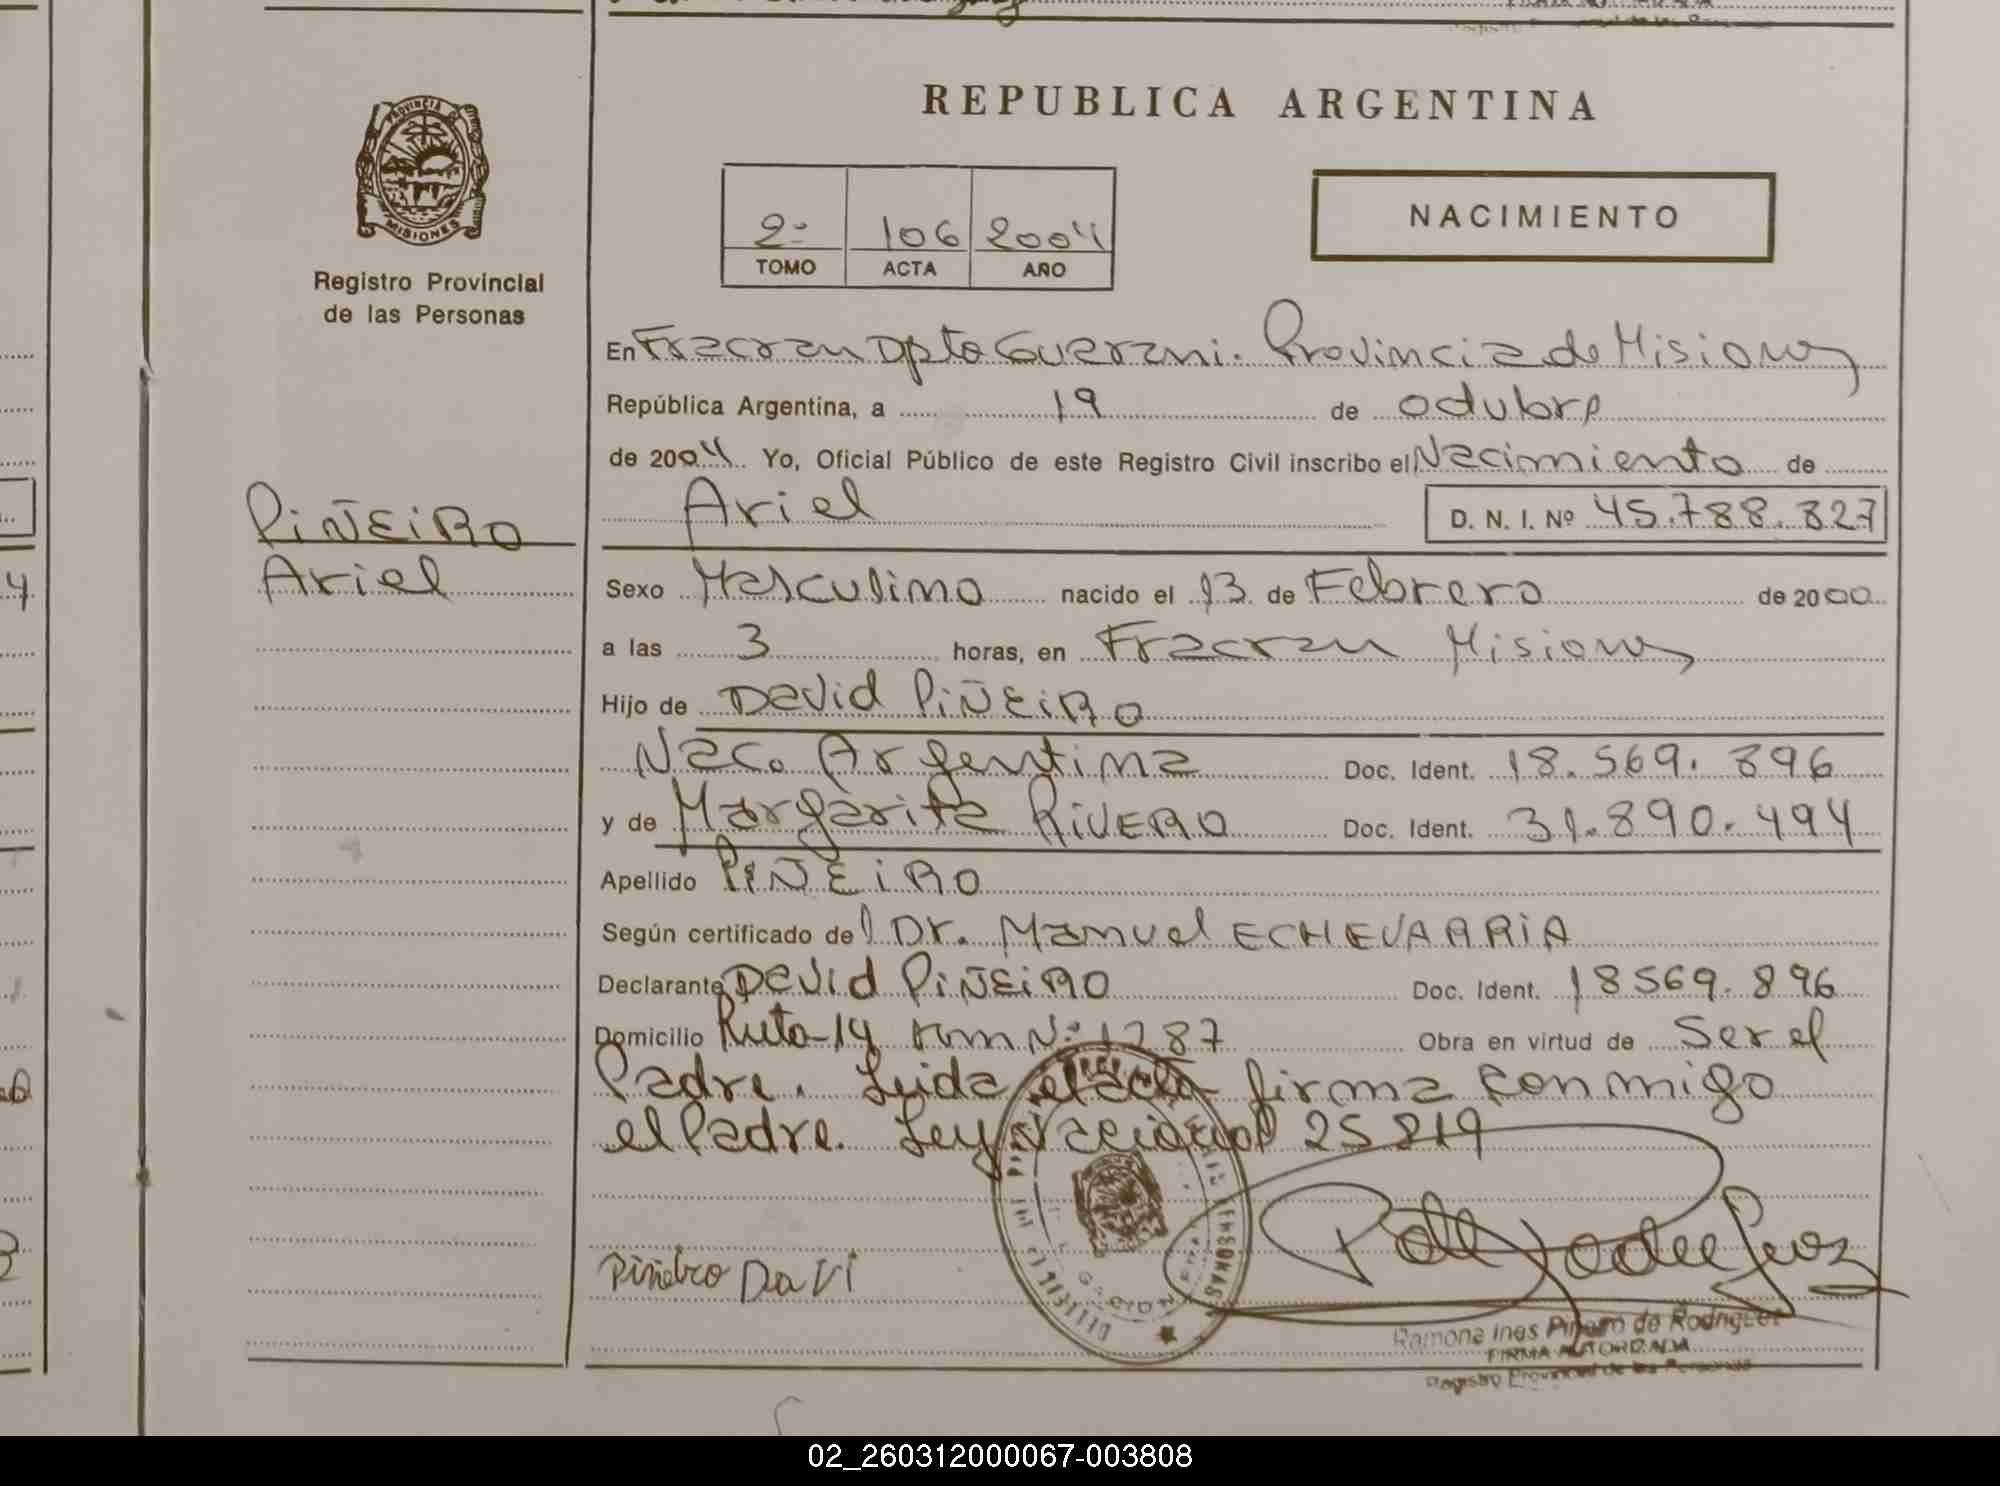 REPUBLICA ARGENTINA
PROVINCIA
MISIONES
Registro Provincial
de las Personas
2º 106 2004
TOMO ACTA AÑO
NACIMIENTO
En Fracran Dpto Guarani. Provincia de Misiones
República Argentina, a 19 de octubre
de 2004 Yo, Oficial Público de este Registro Civil inscribo el Nacimiento de
Ariel D. N. I. Nº 45.788.827
PIÑEIRO
Ariel
Sexo Masculino nacido el 13 de Febrero de 2000
a las 3 horas, en Fracran Misiones
Hijo de David PIÑEIRO
Nac. Argentina Doc. Ident. 18.569.896
y de Margarita RIVERO Doc. Ident. 31.890.494
Apellido PIÑEIRO
Según certificado del Dr. Manuel ECHEVARRIA
Declarante David PIÑEIRO Doc. Ident. 18569.896
Domicilio Ruta-14 Km Nº 1287 Obra en virtud de Ser el
Padre. Leida el acta firma conmigo
el Padre. Ley Nacional 25819
Piñeiro Davi
Ramona Ines Piñeiro de Rodriguez
FIRMA AUTORIZADA
Registro Provincial de las Personas
02_260312000067-003808